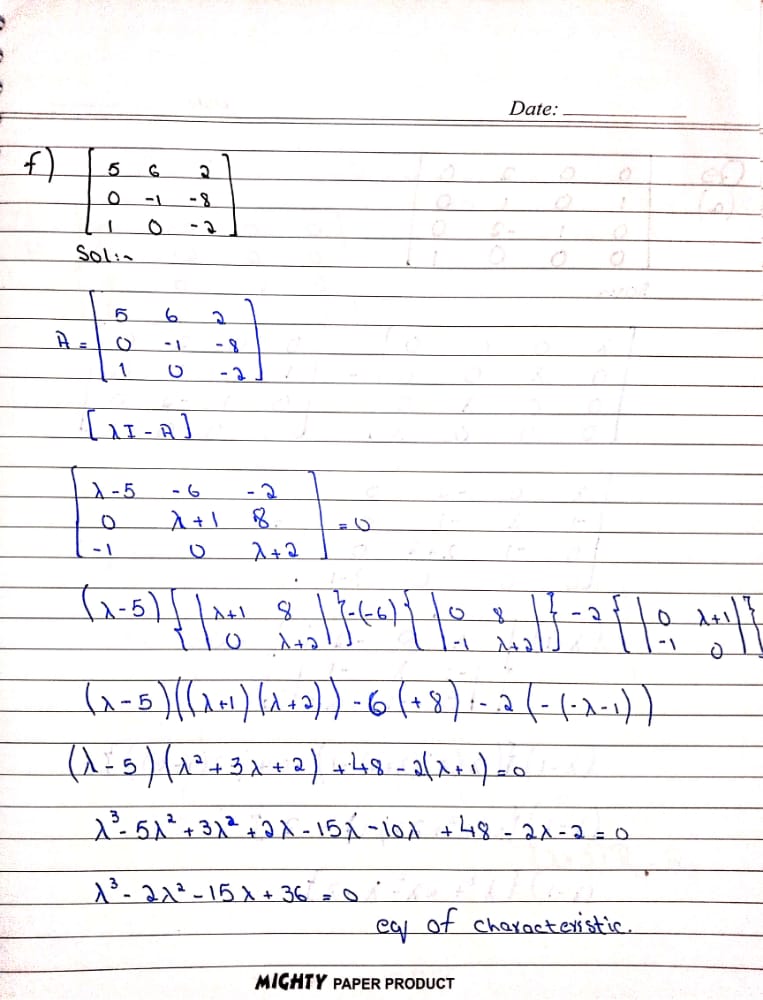 Date:
f) [ 5 6 2
0 -1 -8
1 0 -2 ]
Sol:-
A = [ 5 6 2
0 -1 -8
1 0 -2 ]
[λI - A]
[ λ-5 -6 -2
0 λ+1 8
-1 0 λ+2 ] = 0
(λ-5) { | λ+1 8 | } -(-6) { | 0 8 | } - 2 { | 0 λ+1 | }
0 λ+2 -1 λ+2 -1 0
(λ-5)((λ+1)(λ+2)) - 6(+8) - 2(-(-λ-1))
(λ-5)(λ²+3λ+2) +48 - 2(λ+1) = 0
λ³-5λ²+3λ²+2λ-15λ-10λ +48 - 2λ-2 = 0
λ³-2λ²-15λ+36 = 0
eq of characteristic.
MIGHTY PAPER PRODUCT